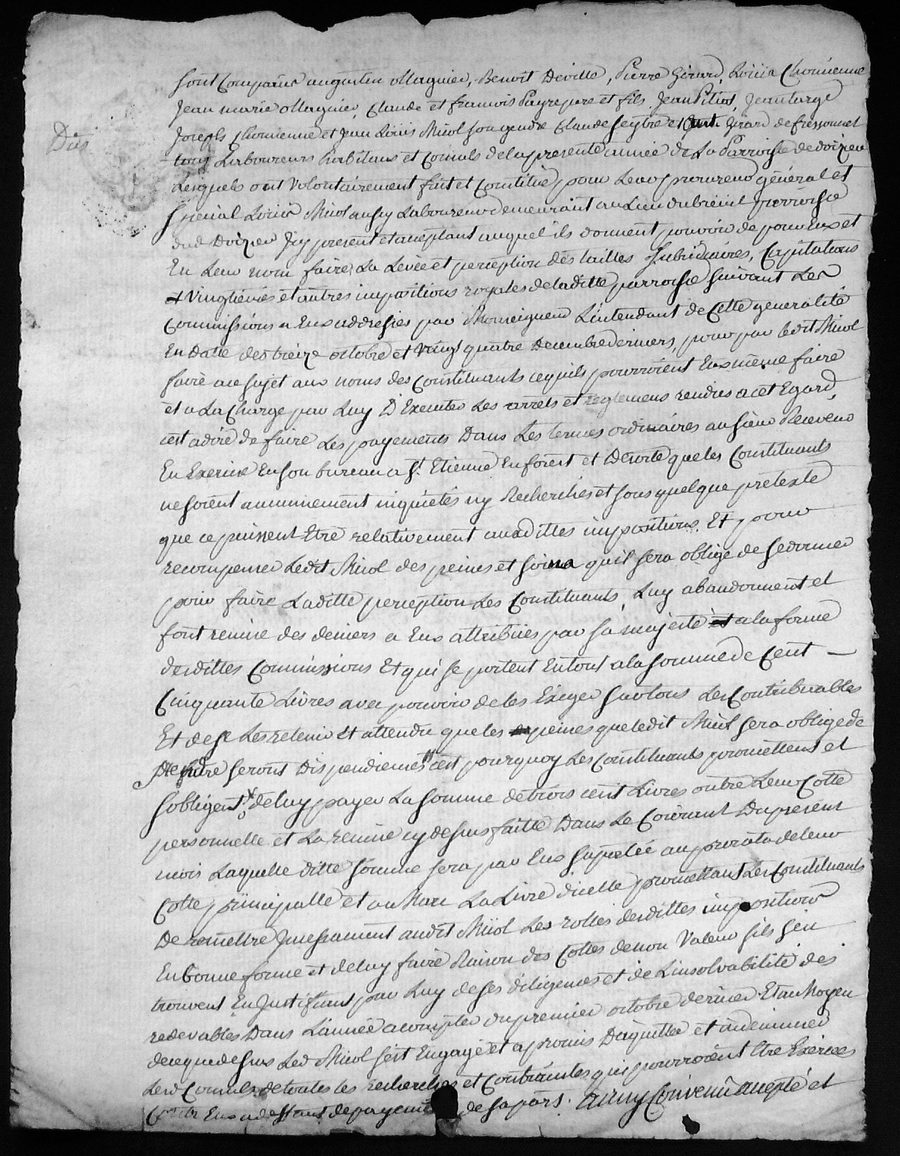 Sont Comparus augustin Magnier, Benoit Deville, Pierre Gérard, Loüis Chomienne
Jean marie Magnier, Claude et francois Payre pere et fils, Jean Pitiot, Jean large
Joseph Chomienne et Jean Loüis Micol son gendre Claude seytre et Ant. Girard de fressonnet
Dud
tous Laboureurs habitans et Consuls de la presente année de La Parroisse de doizieu
Lesquels ont Volontairement fait et Constitué pour Leur procureur général et
Special Loüis Micol aussy Laboureur demeurant au Lieu du parroisse
dud Doizieu Jcy present et acceptant auquel ils donnent pouvoir de pour Eux et
En Leur nom faire La Levée et perception des tailles Subsidiaires, Capitations
Vingtiémes et autres impositions royales de laditte parroisse suivant Les
Commissions a Eux addressées par Monseigneur L'intendant de Cette generalité
En Date des treize octobre et vingt quatre Decembre derniers, pour par ledit Micol
faire a ce sujet aux noms des Constituants ce quils pourroient Eux même faire
et a La Charge par Luy D'Executer Les arrets et reglemens rendus a cet Egard,
cest adire de faire Les payements Dans Les termes ordinaires au sieur Receveur
En Exercice En son bureau a St. Etienne En forest et Desorte que les Constituants
ne soient aucunnement inquiétés ny Recherchés et sous quelque pretexte
que ce puissent Etre relativement auxdittes impositions. Et pour
recompenser Ledit Micol des peines et soins quil sera obligé de se donner
pour faire Laditte perception Les Constituants Luy abandonnent et
font remise des deniers a Eux attribués par sa majesté a la forme
desdittes Commissions Et qui se portent En tout a la somme de Cent
Cinquante Livres avec pouvoir de les Exiger sur tous Les Contribuables
Et de se Les retenir Et attendre que les peines que ledit Micol sera obligé de
prendre seront Dispendieuses cest pourquoy Les Constituants promettent et
s'obligent de luy payer La somme de trois cent Livres outre Leur Cotte
personnelle et La remise cy dessus faitte Dans Le Courant Du present
mois Laquelle ditte somme sera par Eux suportée au prorata de leur
Cotte principalle et au Marc La Livre dicelle promettant Les Constituants
De remettre Jncessament audit Micol Les rolles desdittes impositions
En bonne forme et de luy faire Raison des Cottes de non Valeur sils s'en
trouvent En Justifiant par Luy de ses diligences et de L'insolvabilité des
redevables Dans L'année a compter du premier octobre dernier. Et au Moyen
de ce que dessus Led Micol s'est Engagé et a promis D'aquitter et indemniser
Lesd Consuls de toutes les recherches et Contraintes qui pourroient Etre Exercées
Contre Eux a deffaut de payement de sa part. ainsy Convenu accepté et